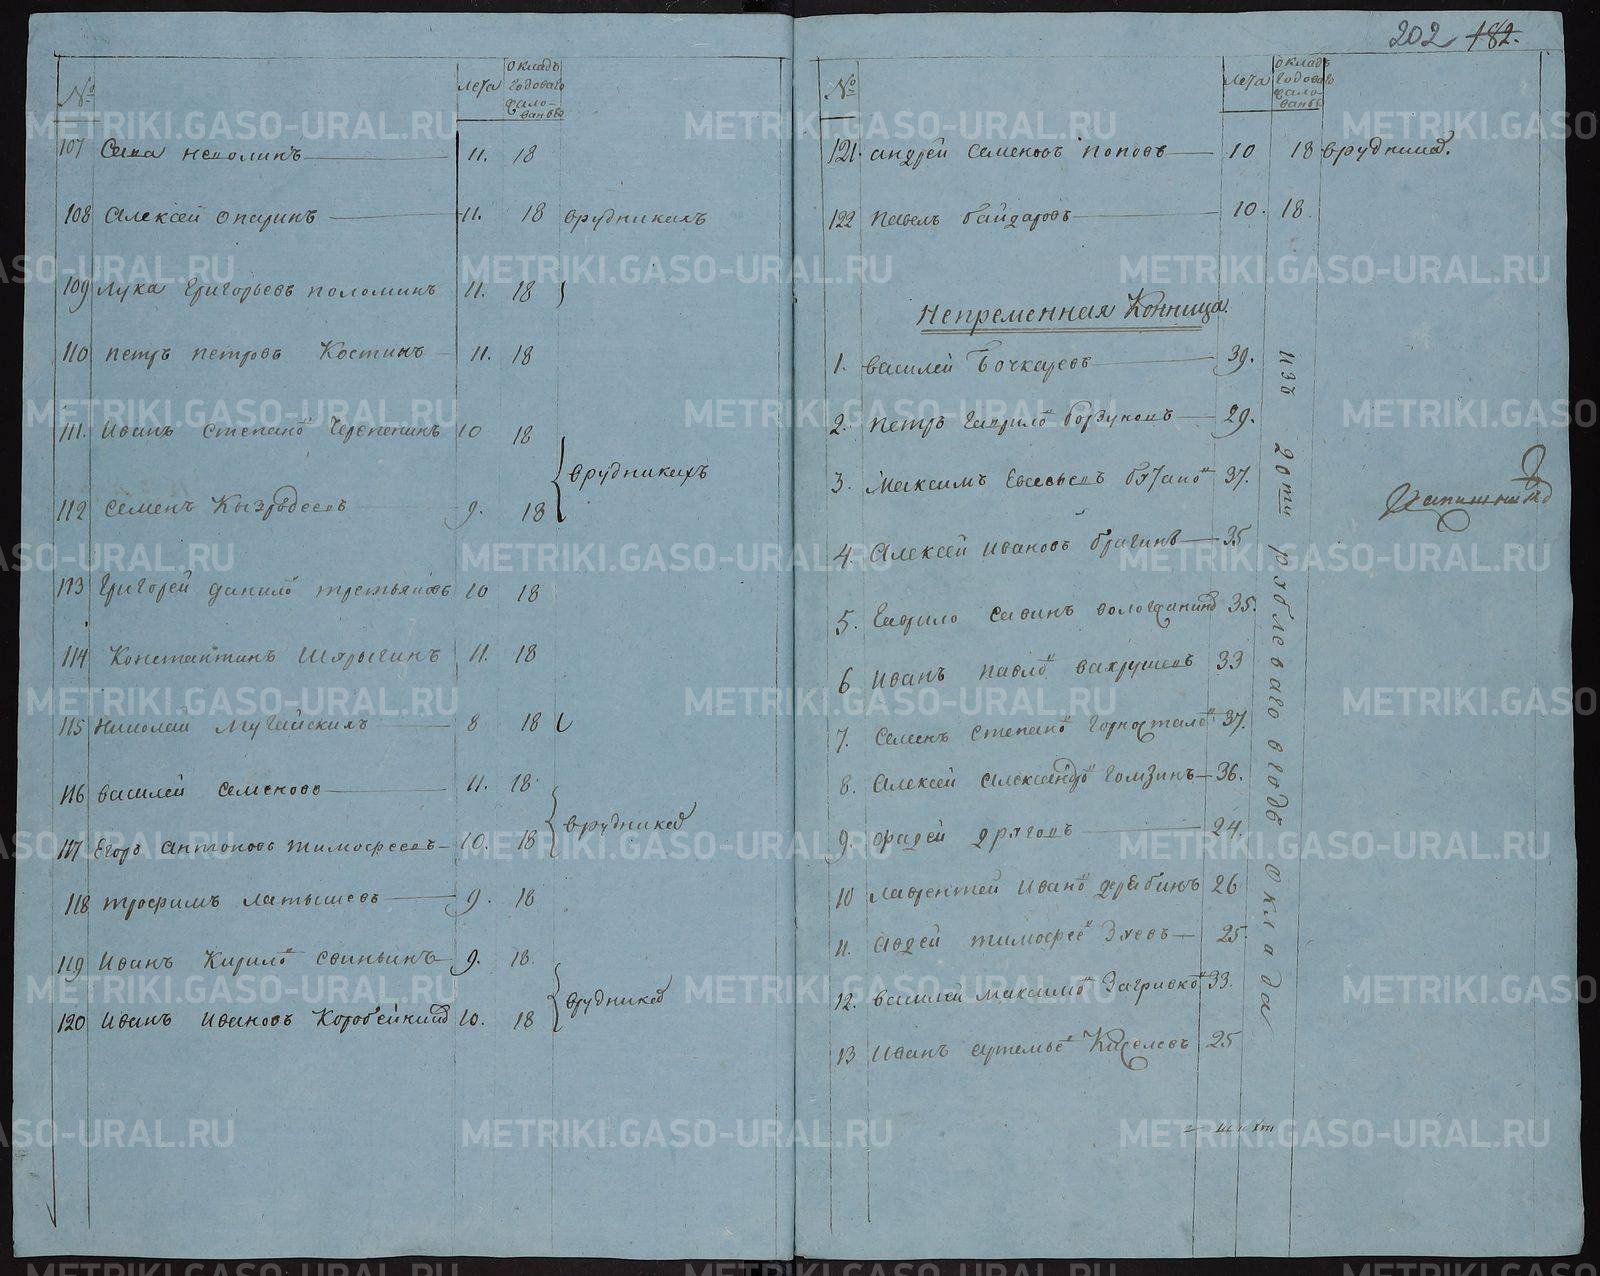 №
лета
окладъ
годоваго
жало-
ванья
107 Сила 11. 18
108 Алексей Опаринъ 11. 18 врудникахъ
109 Лука Григорьевъ поломинъ 11. 18
110 петръ петровъ Костинъ 11. 18
111. Иванъ Степано Черепенинъ 10 18
врудникахъ
112 Семенъ 9. 18
113 Григорей данило третьяковъ 10 18
114 Константинъ Шярыгинъ 11. 18
115 Николай Мугайскихъ 8 18
116 василей семеновъ 11. 18
врудникѣ
117 Егоръ антоновъ тимофеевъ 10. 18
118 трофимъ латышевъ 9. 18
119 Иванъ Кирило свиньинъ 9. 18.
врудникѣ
120 Иванъ Ивановъ 10. 18
202 182.
№
лета
окладъ
годоваго
жало-
ванья
121. андрей семеновъ поповъ 10 18
122 павелъ байдаровъ 10. 18.
Непременная Конница.
1. василей Бочкаревъ 39.
2. петръ гаврило борзуновъ 29.
3. Максимъ 37.
4. Алексей Ивановъ брагинъ 35
5. Гаврило савинъ 35.
6 Иванъ павло вахрушевъ 33
7. Семенъ степано горностало 37.
8. Алексей александро гомзинъ 36.
9. фадей дрягевъ 24.
10 лаврентей ивано дерябинъ 26
11. авдей тимофее Зуевъ 25.
12. василей максимо Загривко 33.
13 Иванъ артемье Киселевъ 25
изъ 20ти рублеваго вгодъ оклада
METRIKI.GASO-URAL.RU